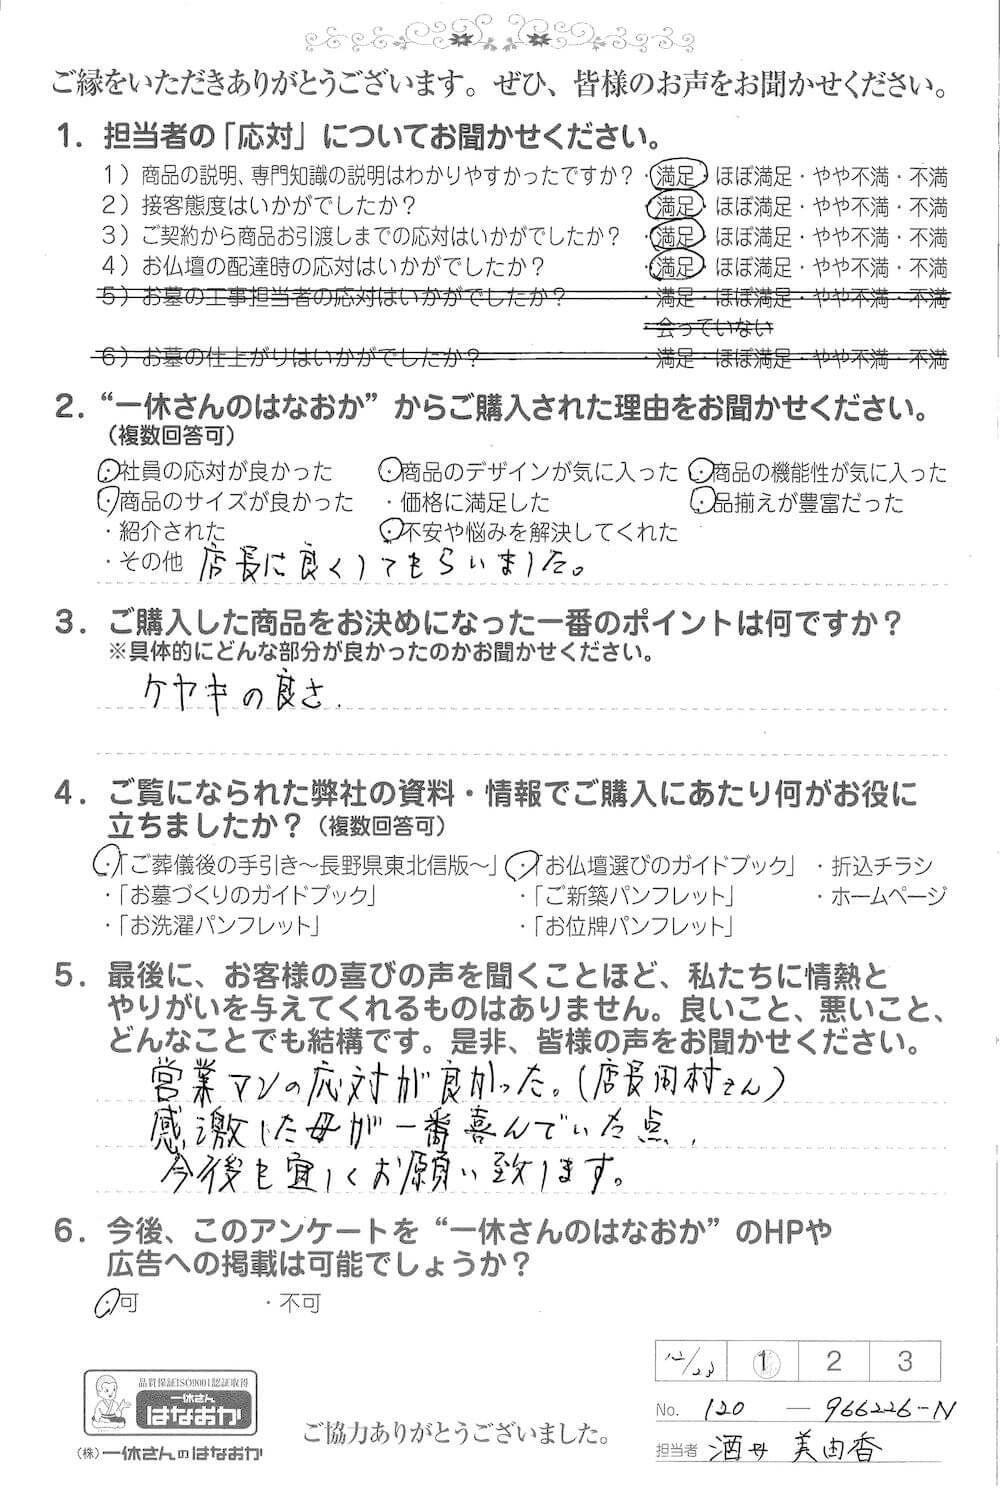 ご縁をいただきありがとうございます。ぜひ、皆様のお声をお聞かせください。
1．担当者の「応対」についてお聞かせください。
1）商品の説明、専門知識の説明はわかりやすかったですか？・満足・ほぼ満足・やや不満・不満
2）接客態度はいかがでしたか？ 満足・ほぼ満足・やや不満・不満
3）ご契約から商品お引渡しまでの応対はいかがでしたか？・満足・ほぼ満足・やや不満・不満
4）お仏壇の配達時の応対はいかがでしたか？ ・満足・ほぼ満足・やや不満・不満
5）お墓の工事担当者の応対はいかがでしたか？ ・満足・ほぼ満足・やや不満・不満
・会っていない
6）お墓の仕上がりはいかがでしたか？ ・満足・ほぼ満足・やや不満・不満
2．“一休さんのはなおか”からご購入された理由をお聞かせください。
（複数回答可）
・社員の応対が良かった ・商品のデザインが気に入った ・商品の機能性が気に入った
・商品のサイズが良かった ・価格に満足した ・品揃えが豊富だった
・紹介された ・不安や悩みを解決してくれた
・その他 店長に良くしてもらいました。
3．ご購入した商品をお決めになった一番のポイントは何ですか？
※具体的にどんな部分が良かったのかお聞かせください。
ケヤキの良さ.
4．ご覧になられた弊社の資料・情報でご購入にあたり何がお役に
立ちましたか？（複数回答可）
・「ご葬儀後の手引き〜長野県東北信版〜」 ・「お仏壇選びのガイドブック」 ・折込チラシ
・「お墓づくりのガイドブック」 ・「ご新築パンフレット」 ・ホームページ
・「お洗濯パンフレット」 ・「お位牌パンフレット」
5．最後に、お客様の喜びの声を聞くことほど、私たちに情熱と
やりがいを与えてくれるものはありません。良いこと、悪いこと、
どんなことでも結構です。是非、皆様の声をお聞かせください。
営業マンの応対が良かった。（店長岡村さん）
感激した母が一番喜んでいた点.
今後も宜しくお願い致します。
6．今後、このアンケートを“一休さんのはなおか”のHPや
広告への掲載は可能でしょうか？
・可 ・不可
12/23 1 2 3
品質保証ISO9001認証取得
一休さん
はなおか
（株）一休さんのはなおか
ご協力ありがとうございました。
No. 120 — 966226-N
担当者 酒井 美由香